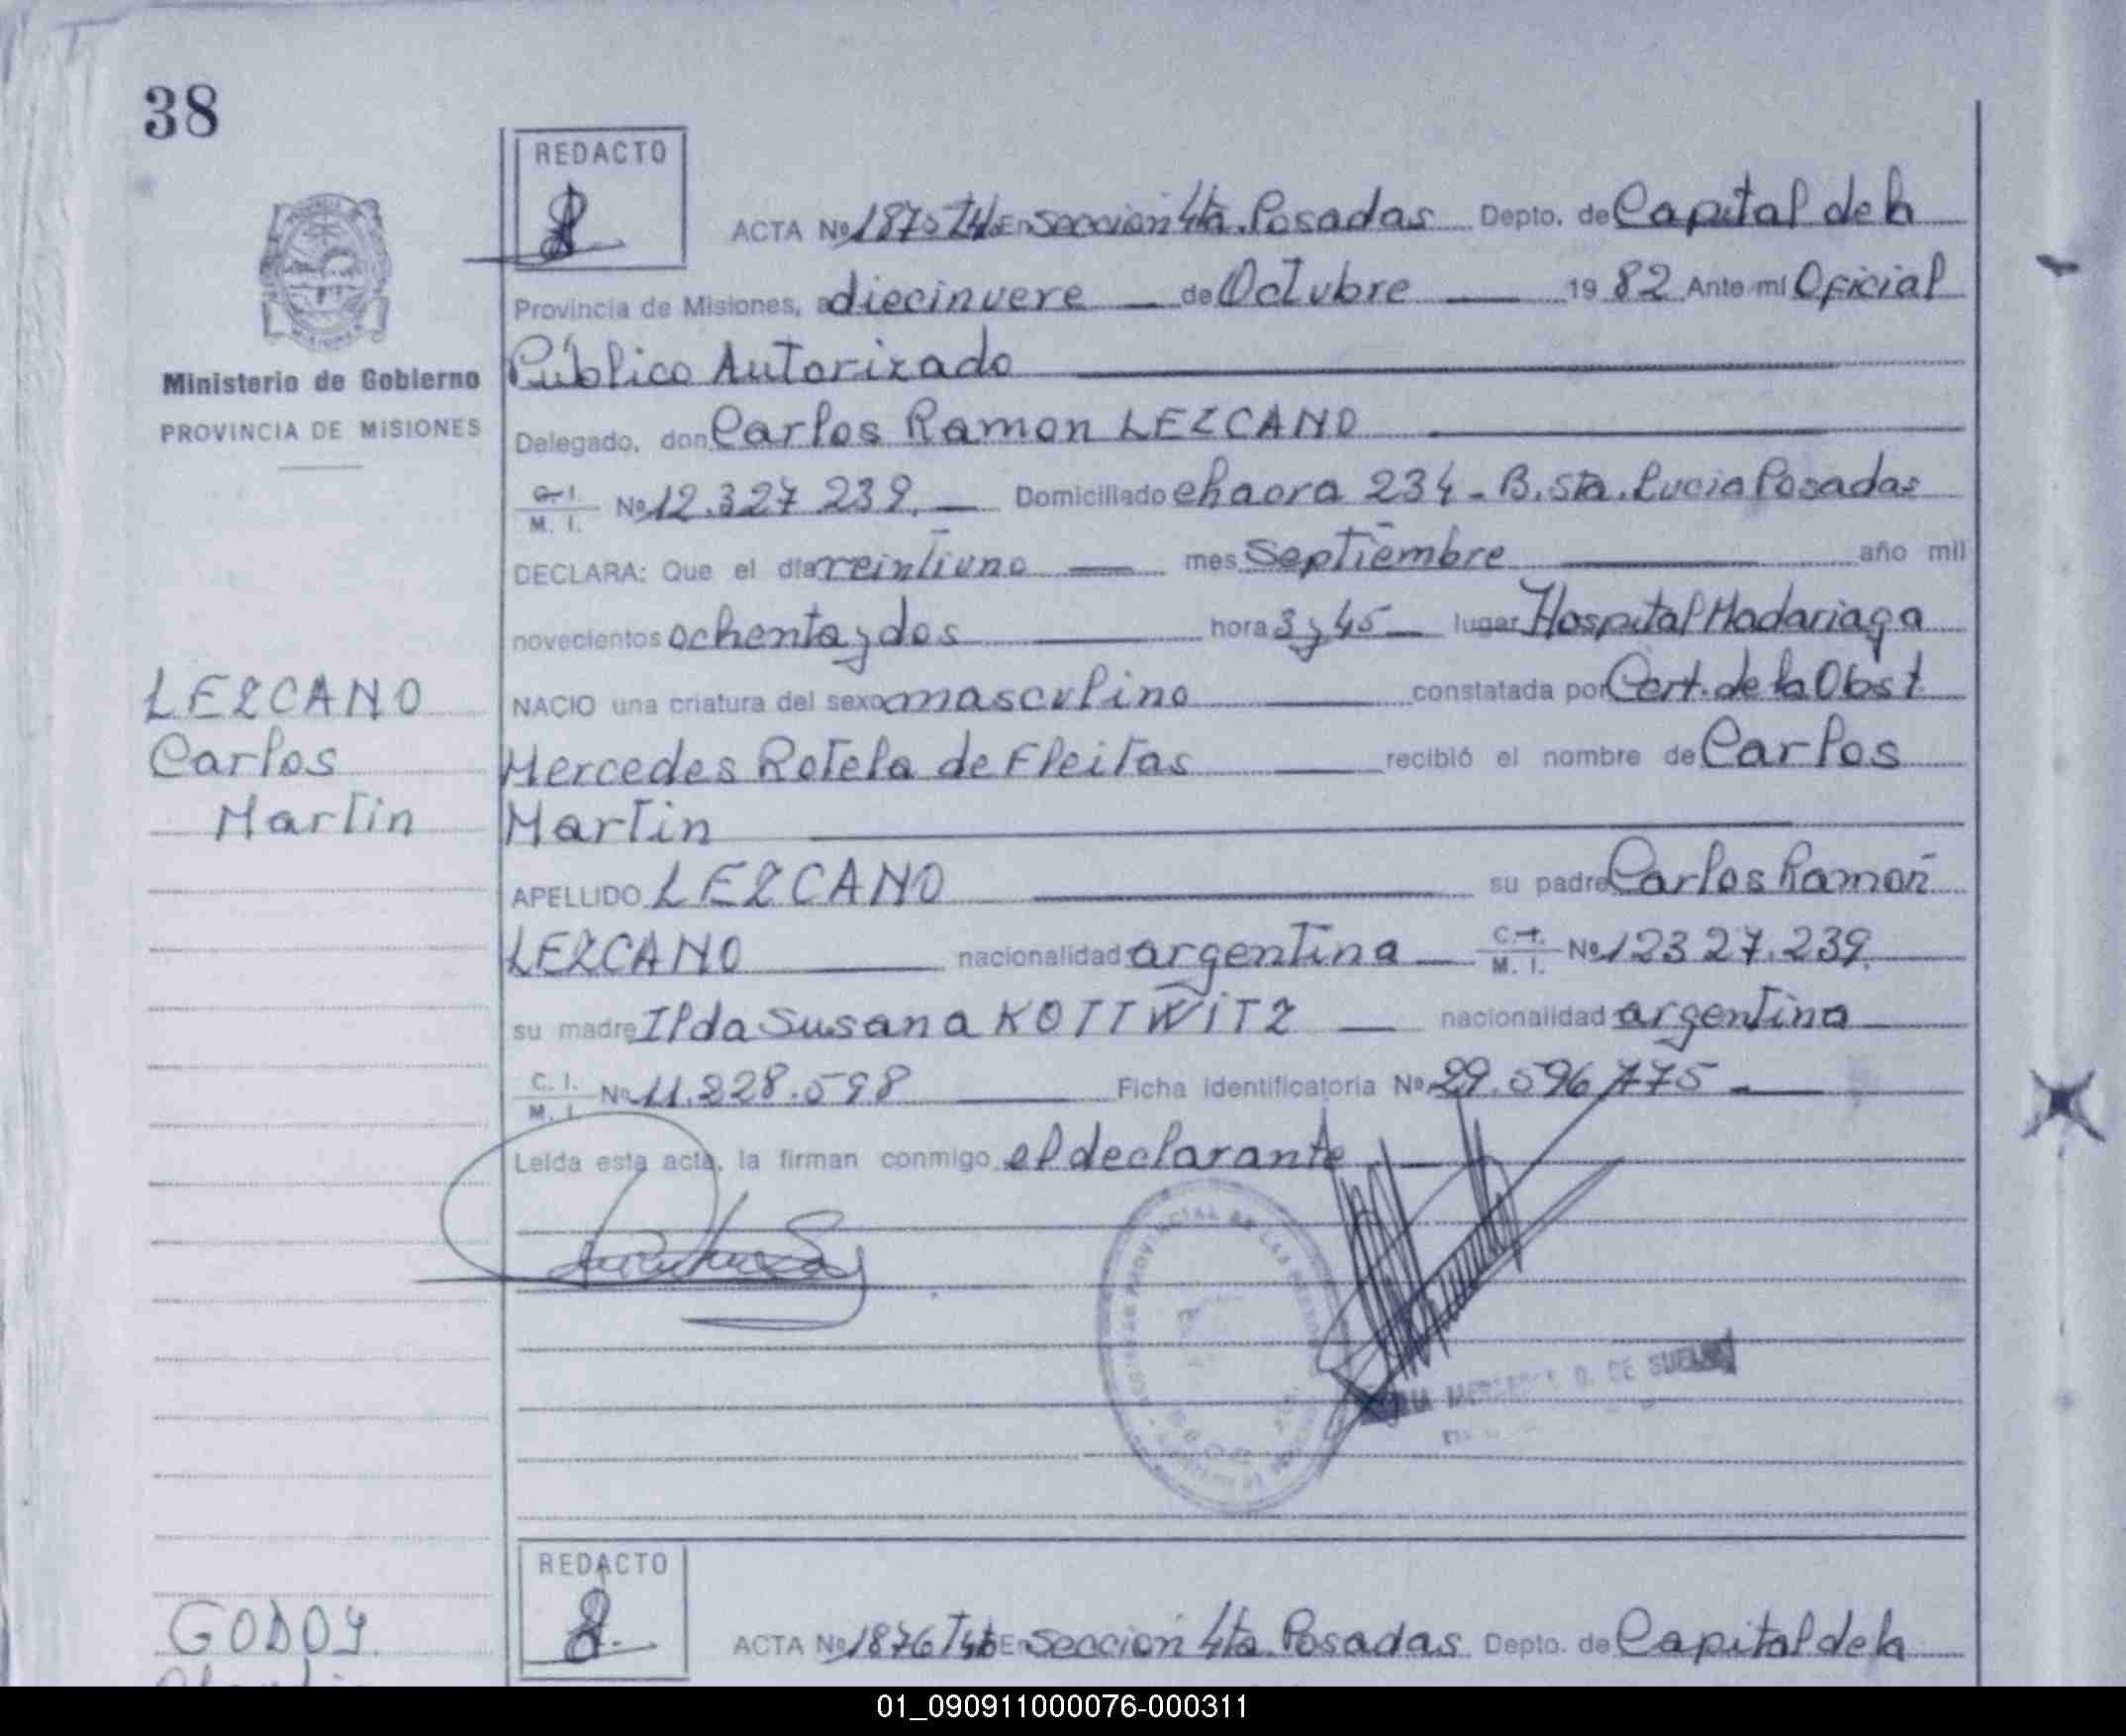 38
REDACTO
ACTA Nº 1875 T4to En Sección 4ta. Posadas Depto. de Capital de la
Provincia de Misiones, a diecinueve de Octubre 1982 Ante mí Oficial
Ministerio de Gobierno
PROVINCIA DE MISIONES
Público Autorizado
Delegado, don Carlos Ramon LEZCANO
C. I.
M. I. Nº 12.327.239. Domiciliado chacra 234 - B. Sta. Lucia Posadas
DECLARA: Que el día veintiuno mes Septiembre año mil
novecientos ochenta y dos hora 3 y 45 lugar Hospital Madariaga
NACIO una criatura del sexo masculino constatada por Cert. de la Obst
LEZCANO
Carlos
Martin
Mercedes Rotela de Fleitas recibió el nombre de Carlos
Martin
APELLIDO LEZCANO su padre Carlos Ramón
LEZCANO nacionalidad argentina C. I. M. I. Nº 12327.239.
su madre Ilda Susana KOTTWITZ nacionalidad argentina
C. I.
M. I. Nº 11.228.598 Ficha identificatoria Nº 29.596.775
Leída esta acta, la firman conmigo el declarante
D. DE
REDACTO
GODOY
ACTA Nº 1876 T4to En Sección 4ta. Posadas Depto. de Capital de la
01_090911000076-000311